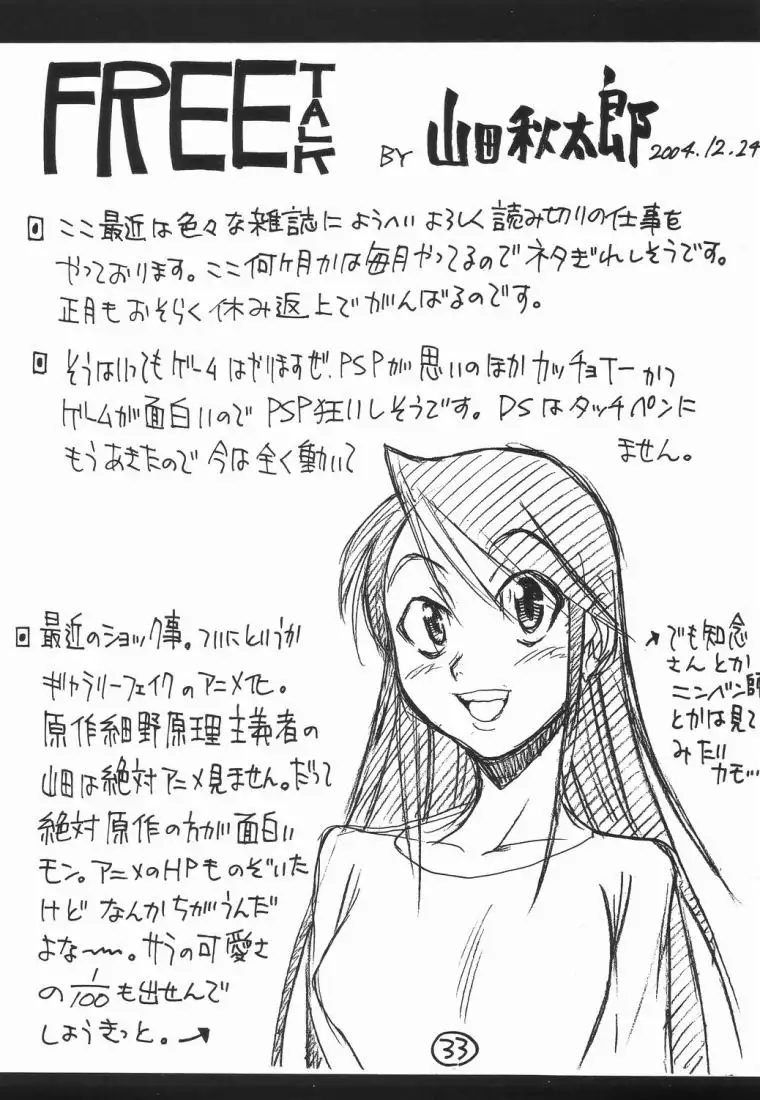 FREE TALK
BY 山田秋太郎 2004.12.24
ここ最近は色々な雑誌にようへいよろしく読み切りの仕事を
やっております。ここ何ヶ月かは毎月やってるのでネタぎれしそうです。
正月もおそらく休み返上でがんばるのです。
そうはいってもゲームはやりますぜ、PSPが思いのほかカッチョイーかつ
ゲームが面白いのでPSP狂いしそうです。DSはタッチペンに
もうあきたので今は全く動いて ません。
最近のショック事。ついにというか
ギャラリーフェイクのアニメ化。
原作細野原理主義者の
山田は絶対アニメ見ません。だって
絶対原作の方が面白い
モン。アニメのHPものぞいた
けどなんかちがうんだ
よな〜。サラの可愛さ
の1/100も出せんで
しょうきっと。→
でも知念
さんとか
ニンベン師
とかは見て
みたい
カモ…
33